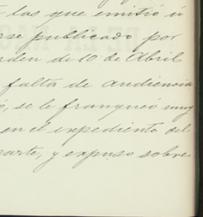 las que emitió ú
rse publicado por
rden de 10 de Abril
falta de audiencia
se le franqueó muy
en el expediente del
parte, y expuso sobre